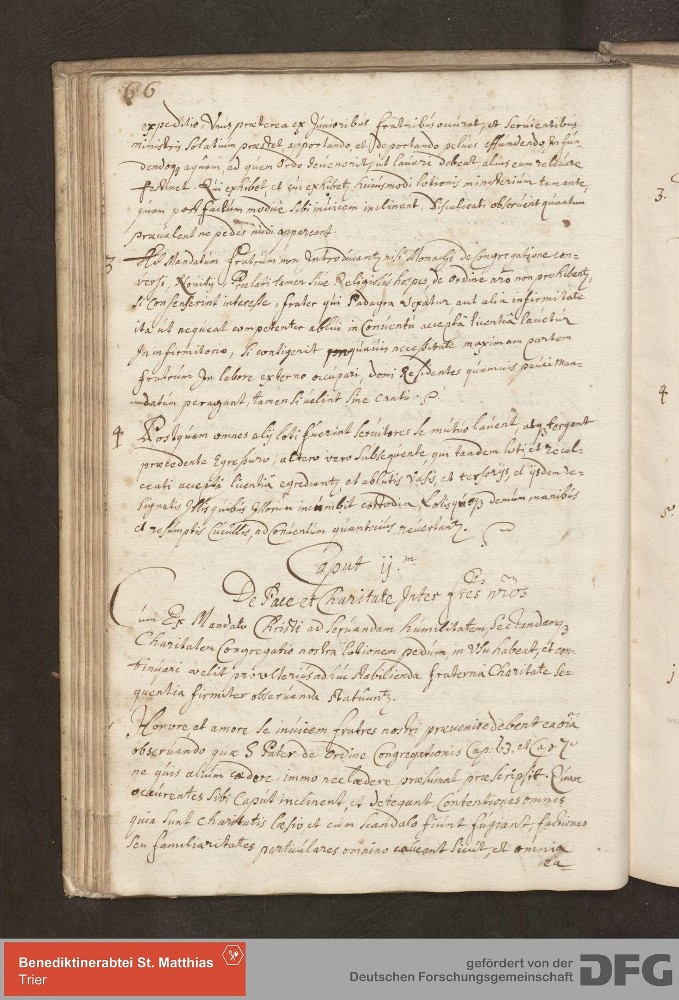 66
expeditio, Unus praeterea ex Junioribus fratribus occurat, et Servientibus
ministris Solatium praestet, apportando, et deportando pelves effundendo, Infun
dendoq3 aquam, ad quem Ordo devenerit, ut lavari debeat, alius eum relevare
festinet. Qui exhibet, et cui exhibetur, huiusmodi lotionis ministerium tam ante,
quam post factum modice Sibi invicem inclinent, Discalceati observent quantum
praevalent ne pedes nudi appareant.
3 Ad Mandatum fratrum non Introducantur nisi Monachi de Congregatione con-
versi, Novitij, Praelati tamen sive Religiosus hospes, de Ordine nro non prohibentur,
Si Consenserint interesse, frater qui Podagra vexatur aut alia infirmitate
ita ut nequeat competenter ablui in Conventu accepta licentia lavetur
In infirmitorio, Si contigerit necessitate maximam partem
fratrum In labore externo occupari, domi Residentes quamvis pauci Man-
datum peragant, tamen si velint Sine Cantu.
4 Postquam omnes alij loti fuerint Servitores se mutuo lavent, atq tergant
praecedente Egressuro, altero vero Subsequente, qui tandem loti et recal-
ceati accepta licentia egrediantur et ablutis Vasis, et tersorijs, et ijsdem re-
signatis Illis quibus Illorum incumbit custodia Lotisque demum manibus
et resumptis Cucullis, ad Conventum quantocius revertantur.
Caput ij.m
De Pace et Charitate Inter fres nros
Cum Ex Mandato Christi ad Servandam humilitatem, Sectandamq3
Charitatem Congregatio nostra lotionem pedum in Usu habeat, et con-
tinuari velit pro Ulterius adhuc Stabilienda fraterna Charitate Se-
quentia firmiter observanda Statuuntur.
1 Honore, et amore Se invicem fratres nostri praevenire debent ea oia
observando quae S Pater de Ordine Congregationis Cap: 63. et Cap 7
ne quis alium caedere, immo nec laedere praesumat praescripsit. Quare
occurentes Sibi Caput inclinent, et detegant, Contentiones omnes
quia Sunt Charitatis laesio, et cum Scandalo fiunt fugiant, factiones
Seu familiaritates particulares omnino caveant Sicut, et omnia
ea-
3.
4
5.
Benediktinerabtei St. Matthias
Trier
gefördert von der
Deutschen Forschungsgemeinschaft
DFG